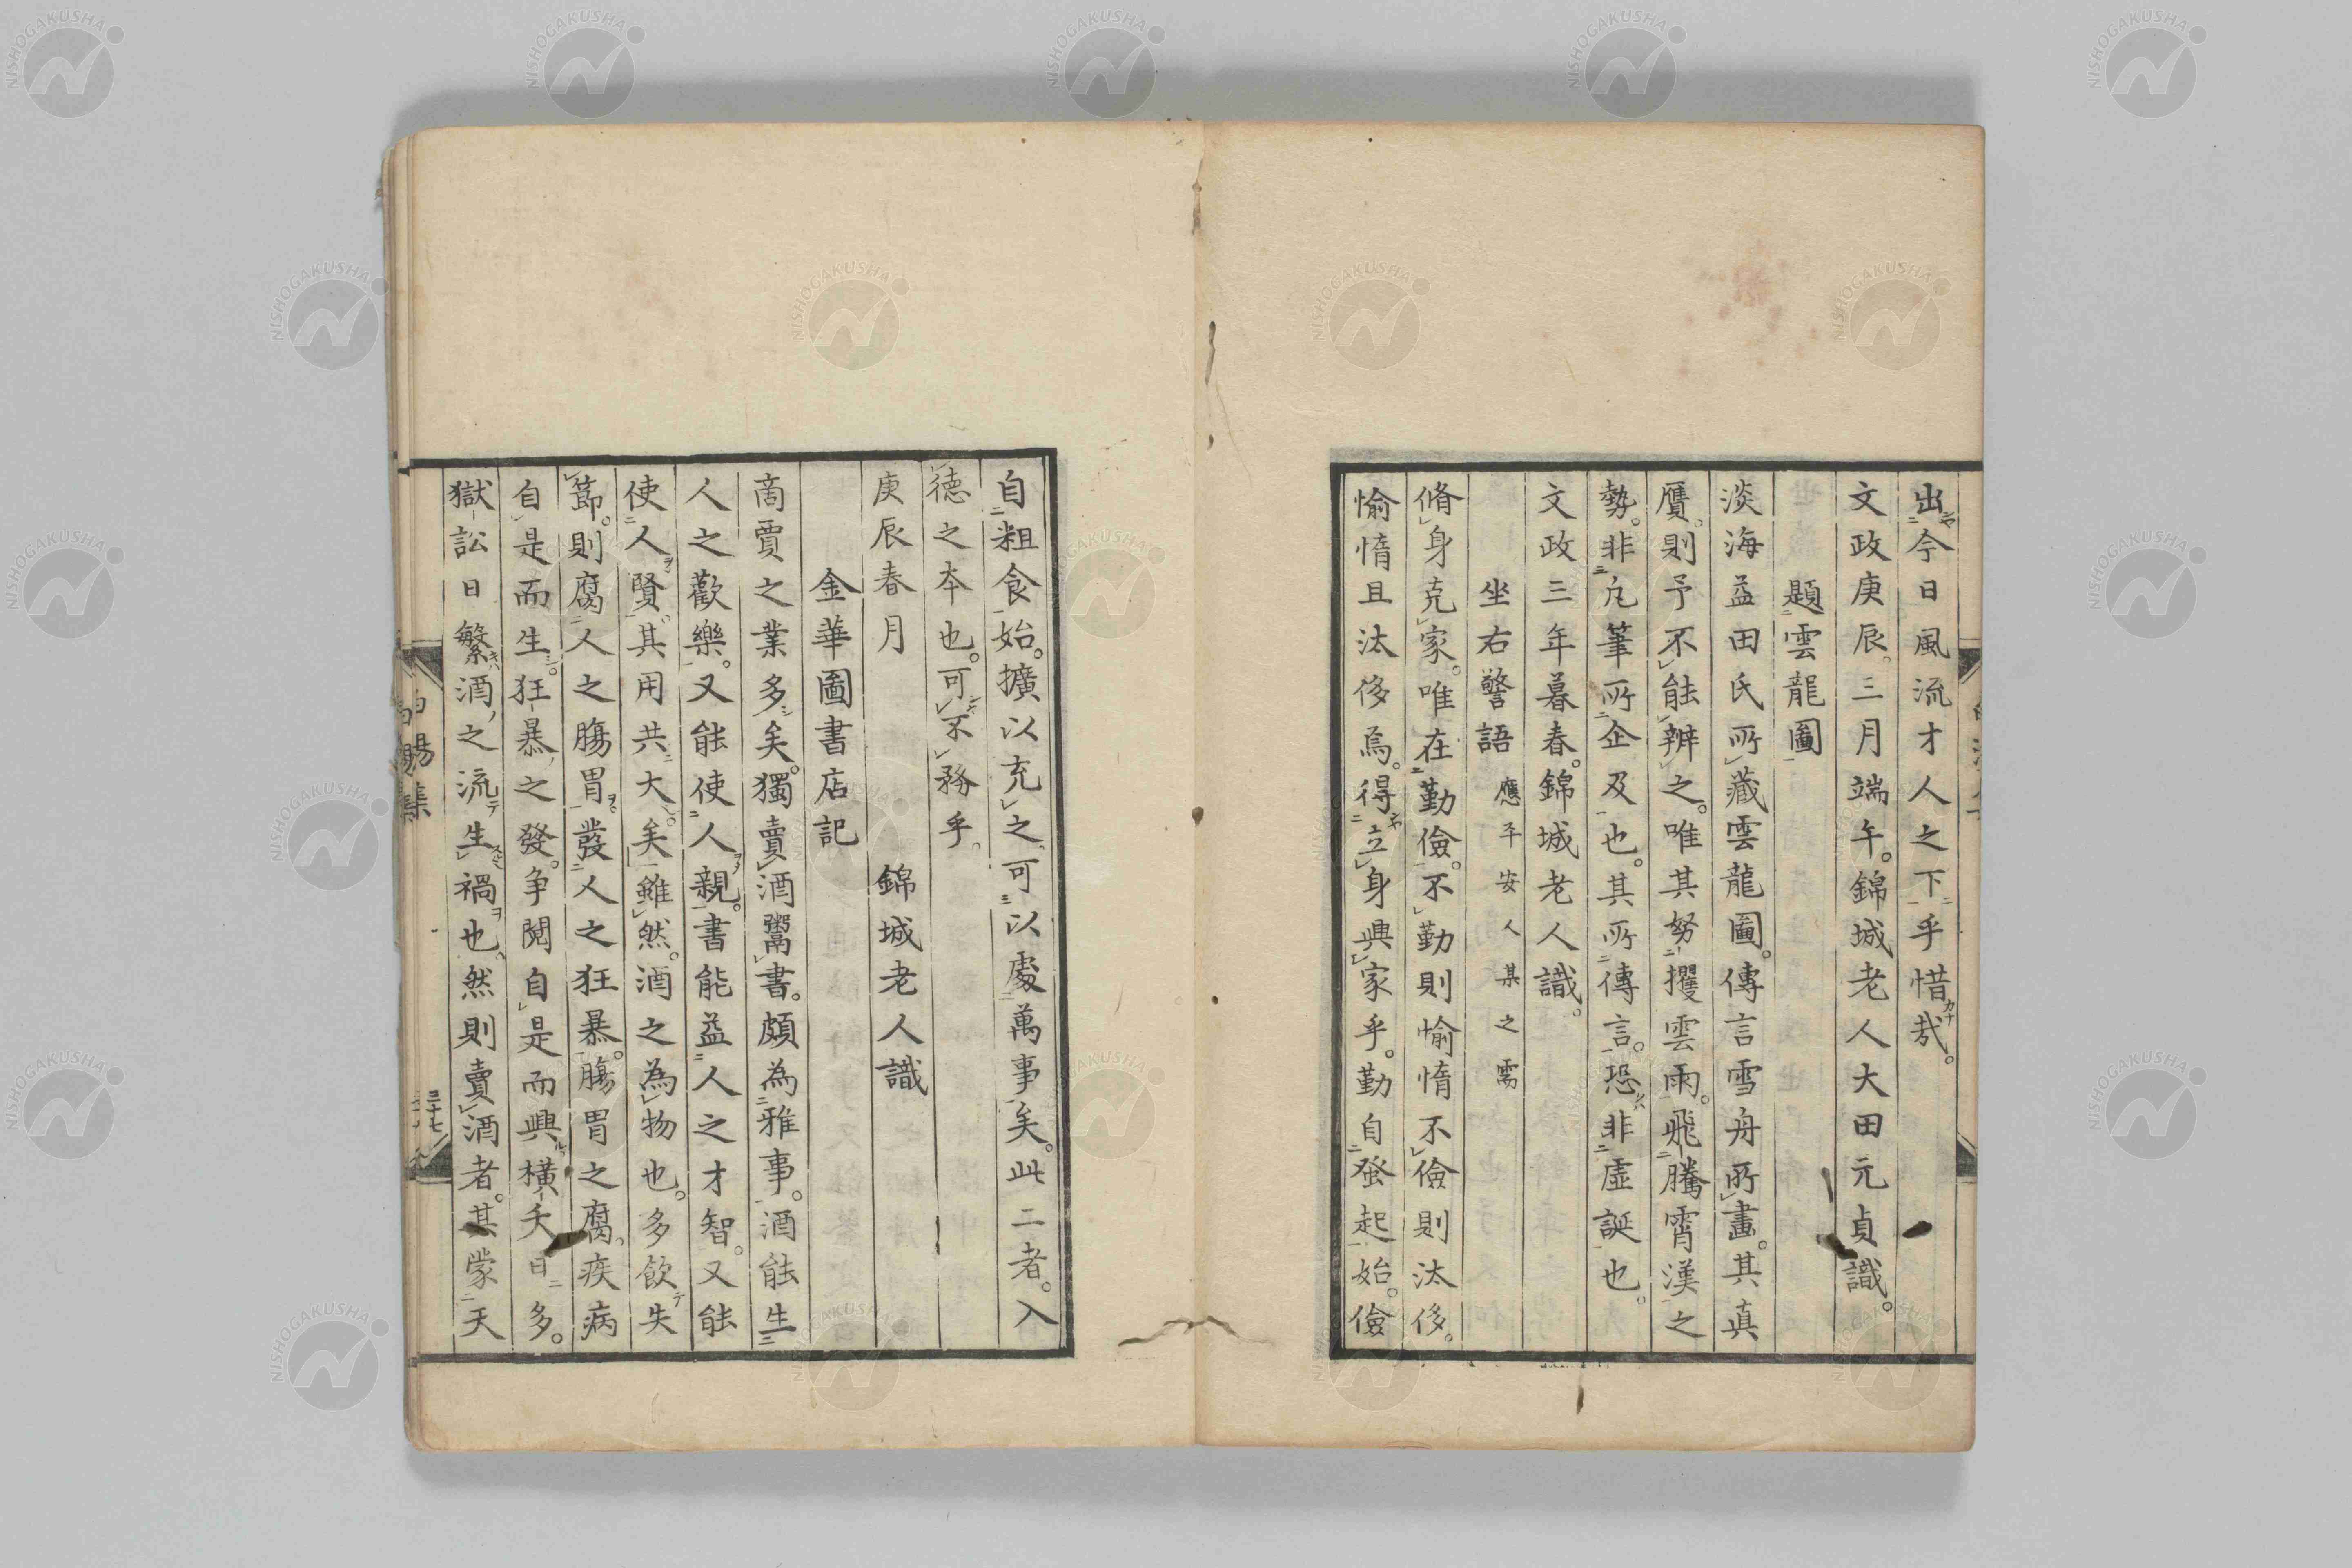 出今日風流才人之下乎惜哉。
文政庚辰。三月端午。錦城老人大田元貞識。
題雲龍圖
淡海益田氏所藏雲龍圖。傳言雪舟所畫。其真
贋。則予不能辨之。唯其努攫雲雨。飛騰霄漢之
勢。非凡筆所企及也。其所傳言。恐非虛誕也。
文政三年暮春。錦城老人識。
坐右警語 應平安人某之需
脩身克家。唯在勤儉。不勤則愉惰不儉則汰侈。
愉惰且汰侈焉。得立身興家乎。勤自發起始。儉
自粗食始。擴以充之、可以處萬事矣。此二者。入
德之本也。可不務乎。
庚辰春月 錦城老人識
金華圖書店記
商賈之業多矣。獨賣酒鬻書。頗為雅事。酒能生
人之歡樂。又能使人親。書能益人之才智。又能
使人賢。其用共大矣。雖然。酒之為物也。多飲失
節。則腐人之腸胃。發人之狂暴。腸胃之腐。疾病
自是而生。狂暴之發。爭鬩自是而興橫夭日多。
獄訟日繁酒之流生禍也。然則賣酒者。其蒙天
二十七
NISHOGAKUSHA